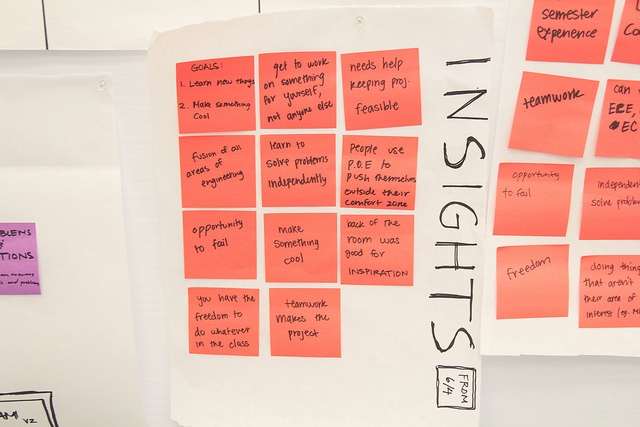 GOALS:
1. Learn new things
2. Make something
cool
get to work
on something
for yourself,
not anyone else
needs help
keeping proj.
feasible
fusion of all
areas of
engineering
learn to
solve problems
independently
People use
P.O.E to
push themselves
outside their
comfort zone
opportunity
to fail
make
something
cool
back of the
room was
good for
INSPIRATION
you have the
freedom to
do whatever
in the class
teamwork
makes the
project
INSIGHTS
FROM
6/4
semester
experience
teamwork
can
ECE,
EC
opportunity
to fail
independen
solve proble
freedom
doing thing
that aren't
their area of
interest (eg. M
BLEMS
TIONS
V2